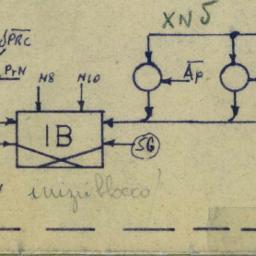 XN5
PRC
PrN
N8 N10
Ap
IB
SG
inizio blocco